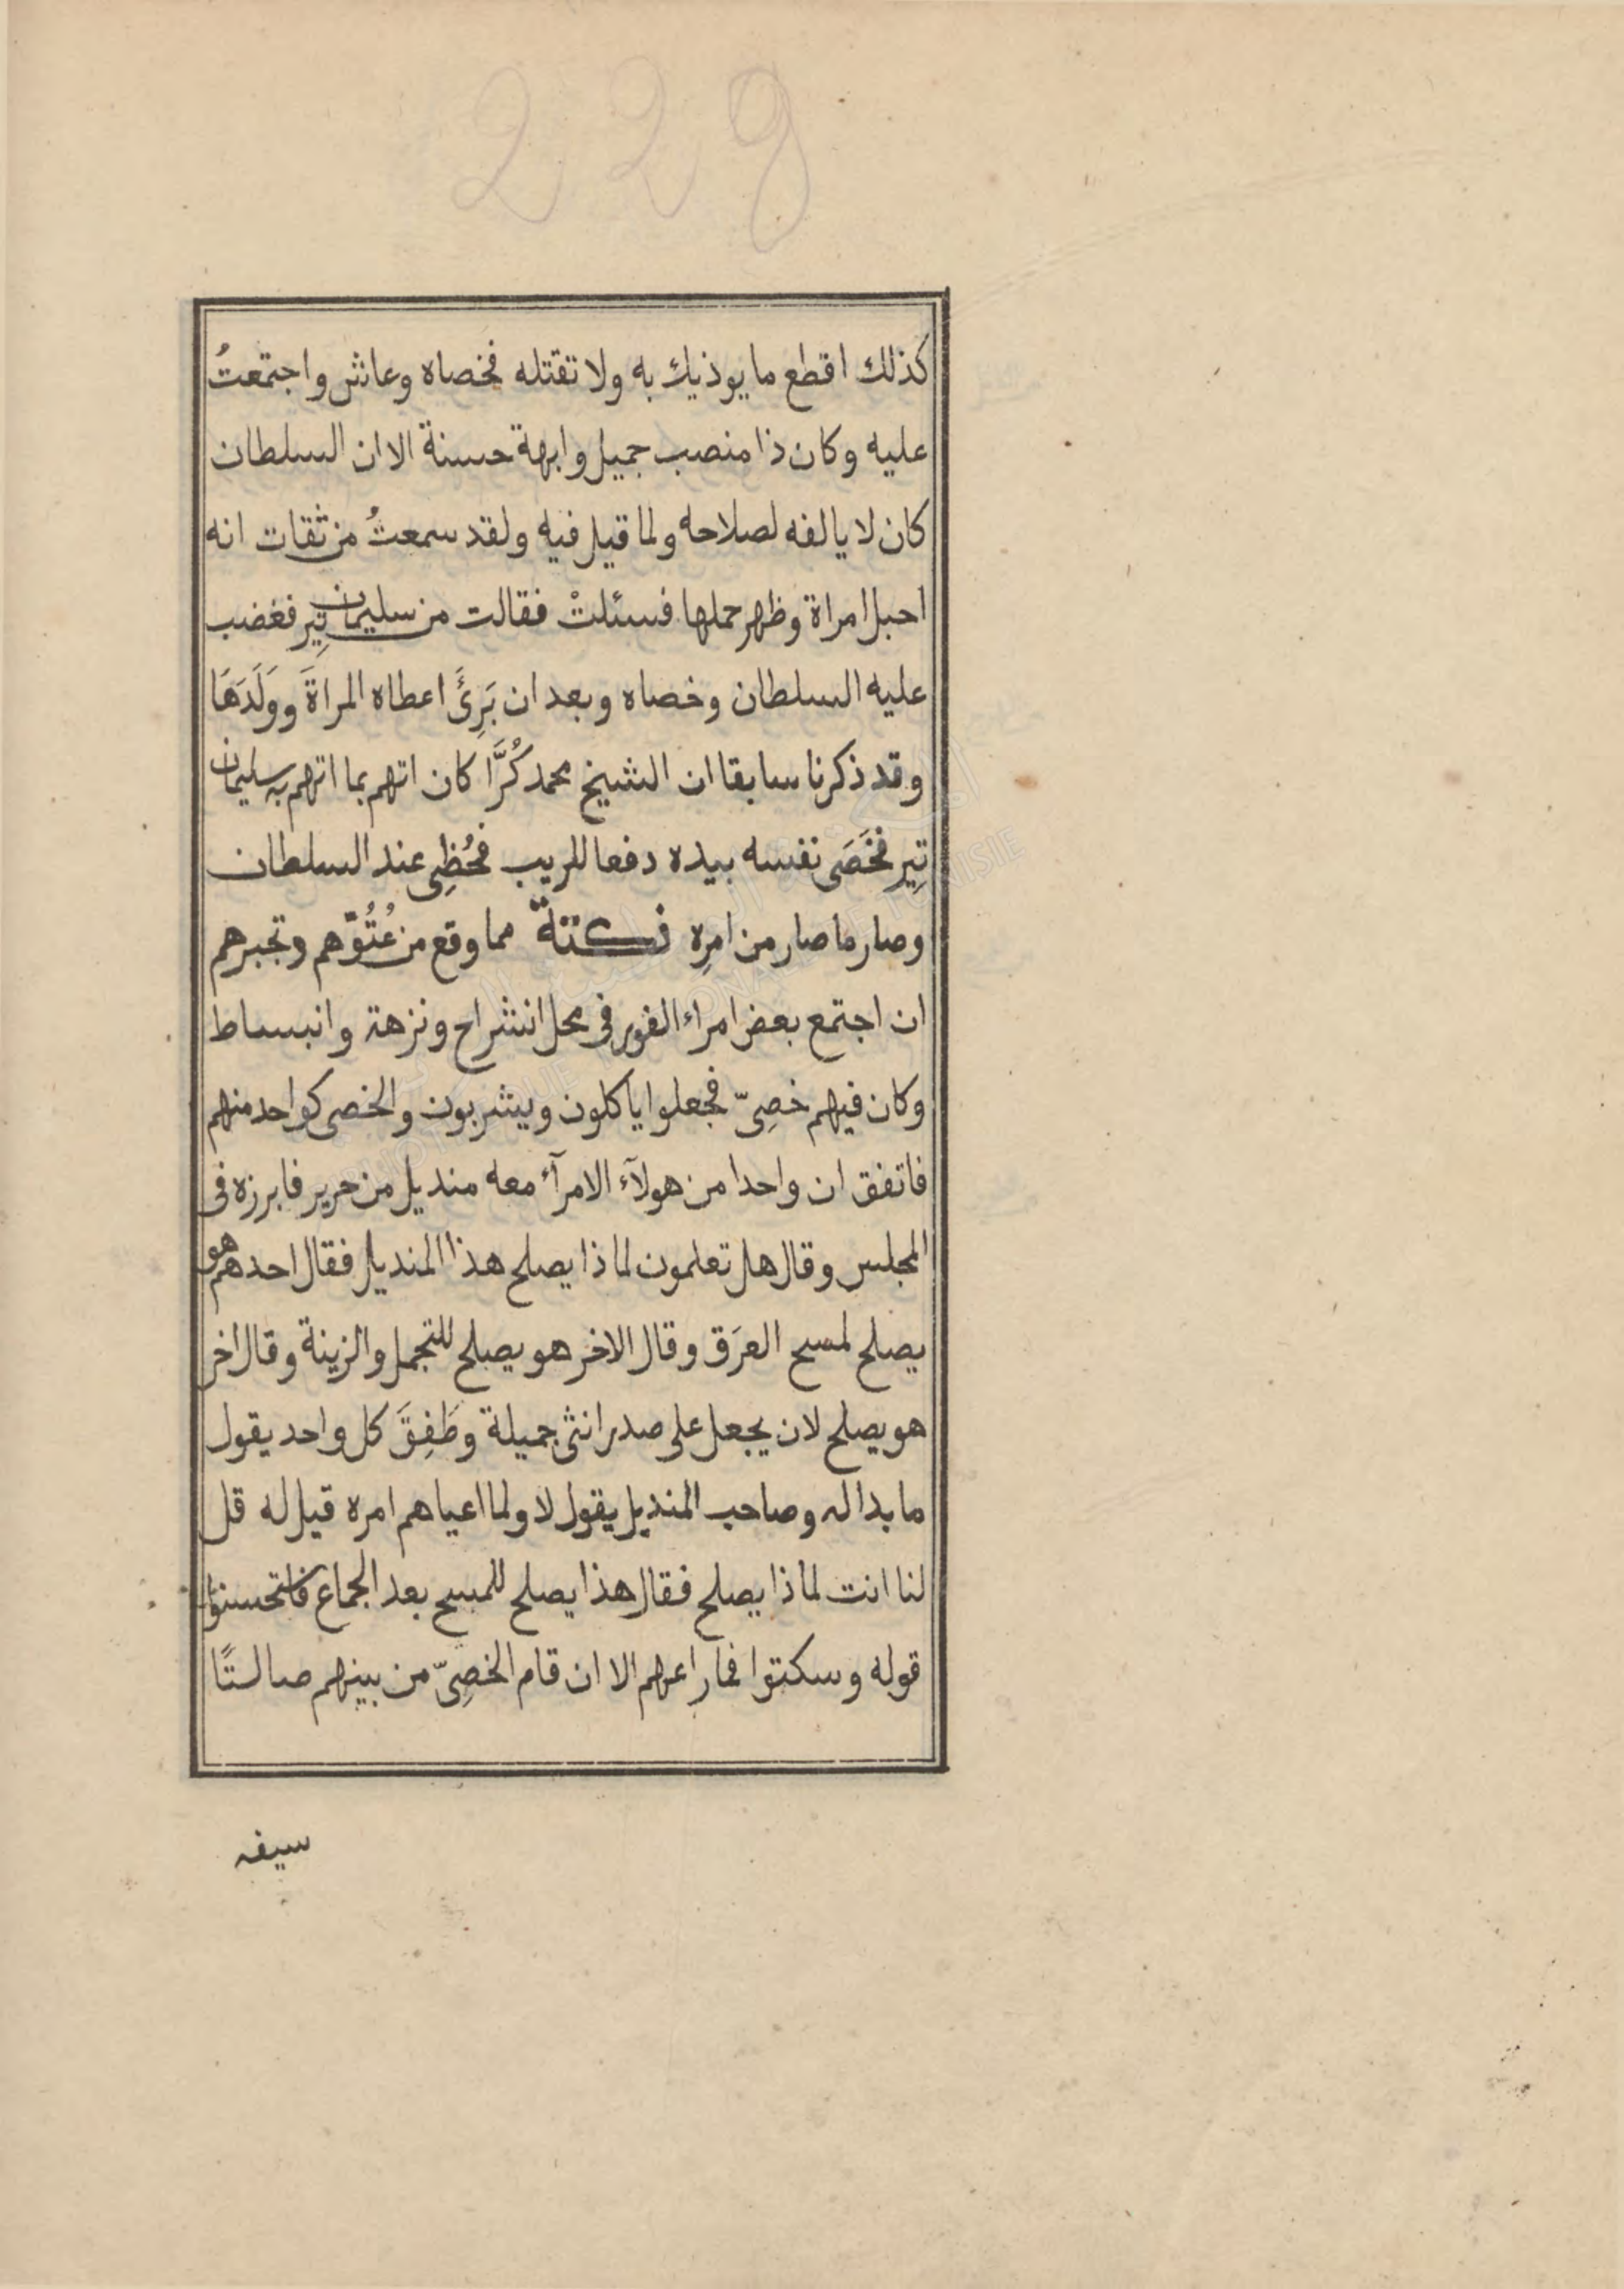 229
كذلك اقطع ما يوذيك به ولا تقتله فخصاه وعاش واجتمعتُ
عليه وكان ذا منصب جميل وابهة حسنة الا ان السلطان
كان لا يالفه لصلاحه ولما قيل فيه ولقد سمعتُ من ثقات انه
احبل امراة وظهر حملها فسئلتْ فقالت من سليمان تِير فغضب
عليه السلطان وخصاه وبعد ان بَرِئَ اعطاه المراةَ ووَلَدَهَا
وقد ذكرنا سابقا ان الشيخ محمد كُرَّا كان اتهم بما اتهم به سليمان
تِير فخَصَى نفسه بيده دفعا للريب فحُظِى عند السلطان
وصار ما صار من امرِه نكتة مما وقع من عُتُوّهم وتجبرهم
ان اجتمع بعض امراء الفور فى محل انشراح ونزهة وانبساط
وكان فيهم خصِىّ فجعلوا ياكلون ويشربون والخصى كواحد منهم
فاتفق ان واحدا من هولآء الامرآء معه منديل من حرير فابرزه فى
المجلس وقال هل تعلمون لماذا يصلح هذا المنديل فقال احدهم هو
يصلح لمسح العرَق وقال الاخر هو يصلح للتجمل والزينة وقال اخر
هو يصلح لان يجعل على صدر انثى جميلة وطَفِقَ كل واحد يقول
ما بدا له وصاحب المنديل يقول لا ولما اعياهم امره قيل له قل
لنا انت لماذا يصلح فقال هذا يصلح للمسح بعد الجماع فاستحسنوا
قوله وسكتوا فما راعهم الا ان قام الخصِىّ من بينهم صالتًا
سيفه